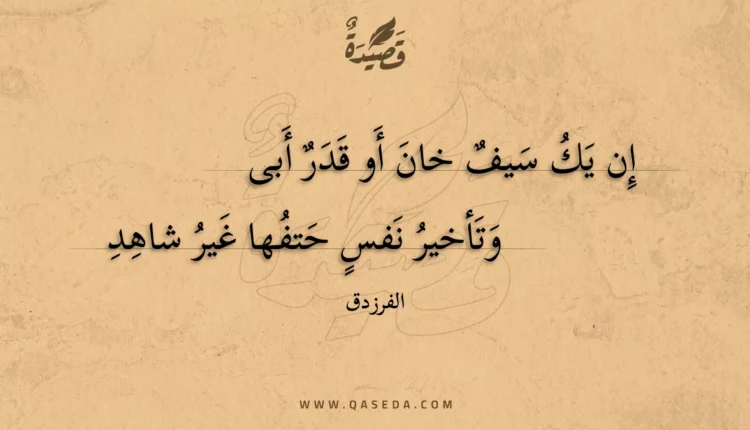 قَصِيدَةٌ
إِن يَكُ سَيفٌ خانَ أَو قَدَرٌ أَبى
وَتَأخيرُ نَفسٍ حَتفُها غَيرُ شاهِدِ
الفرزدق
WWW.QASEDA.COM